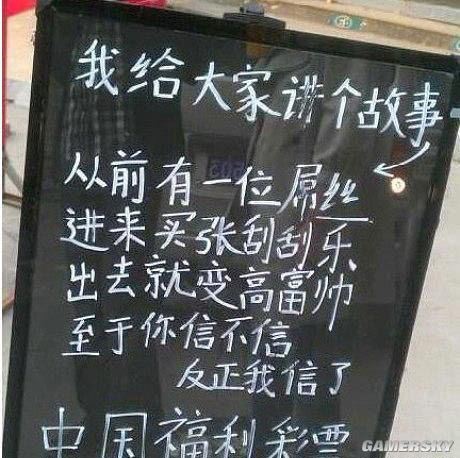 我给大家讲个故事
从前有一位屌丝
进来买张刮刮乐
出去就变高富帅
至于你信不信
反正我信了
中国福利彩票
GAMERSKY